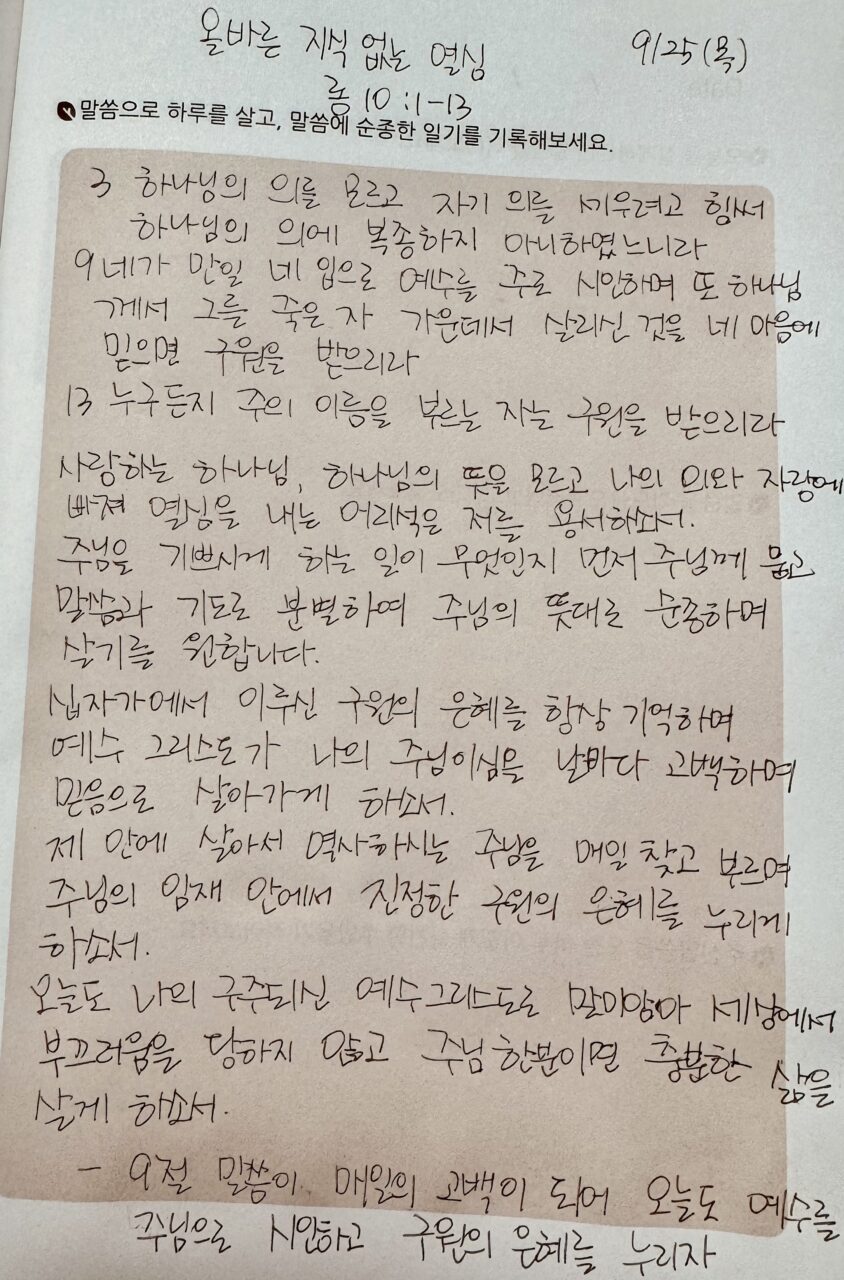 올바른 지식 없는 열심 9/25(목)
롬 10:1-13
말씀으로 하루를 살고, 말씀에 순종한 일기를 기록해보세요.
3 하나님의 의를 모르고 자기 의를 세우려고 힘써
하나님의 의에 복종하지 아니하였느니라
9 네가 만일 네 입으로 예수를 주로 시인하며 또 하나님
께서 그를 죽은 자 가운데서 살리신 것을 네 마음에
믿으면 구원을 받으리라
13 누구든지 주의 이름을 부르는 자는 구원을 받으리라
사랑하는 하나님, 하나님의 뜻을 모르고 나의 의와 자랑에
빠져 열심을 내는 어리석은 저를 용서하소서.
주님을 기쁘시게 하는 일이 무엇인지 먼저 주님께 묻고
말씀과 기도로 분별하여 주님의 뜻대로 순종하며
살기를 원합니다.
십자가에서 이루신 구원의 은혜를 항상 기억하며
예수 그리스도가 나의 주님이심을 날마다 고백하며
믿음으로 살아가게 하소서.
제 안에 살아서 역사하시는 주님을 매일 찾고 부르며
주님의 임재 안에서 진정한 구원의 은혜를 누리게
하소서.
오늘도 나의 구주되신 예수그리스도로 말미암아 세상에서
부끄러움을 당하지 않고 주님 한분이면 충분한 삶을
살게 하소서.
- 9절 말씀이 매일의 고백이 되어 오늘도 예수를
주님으로 시인하고 구원의 은혜를 누리자